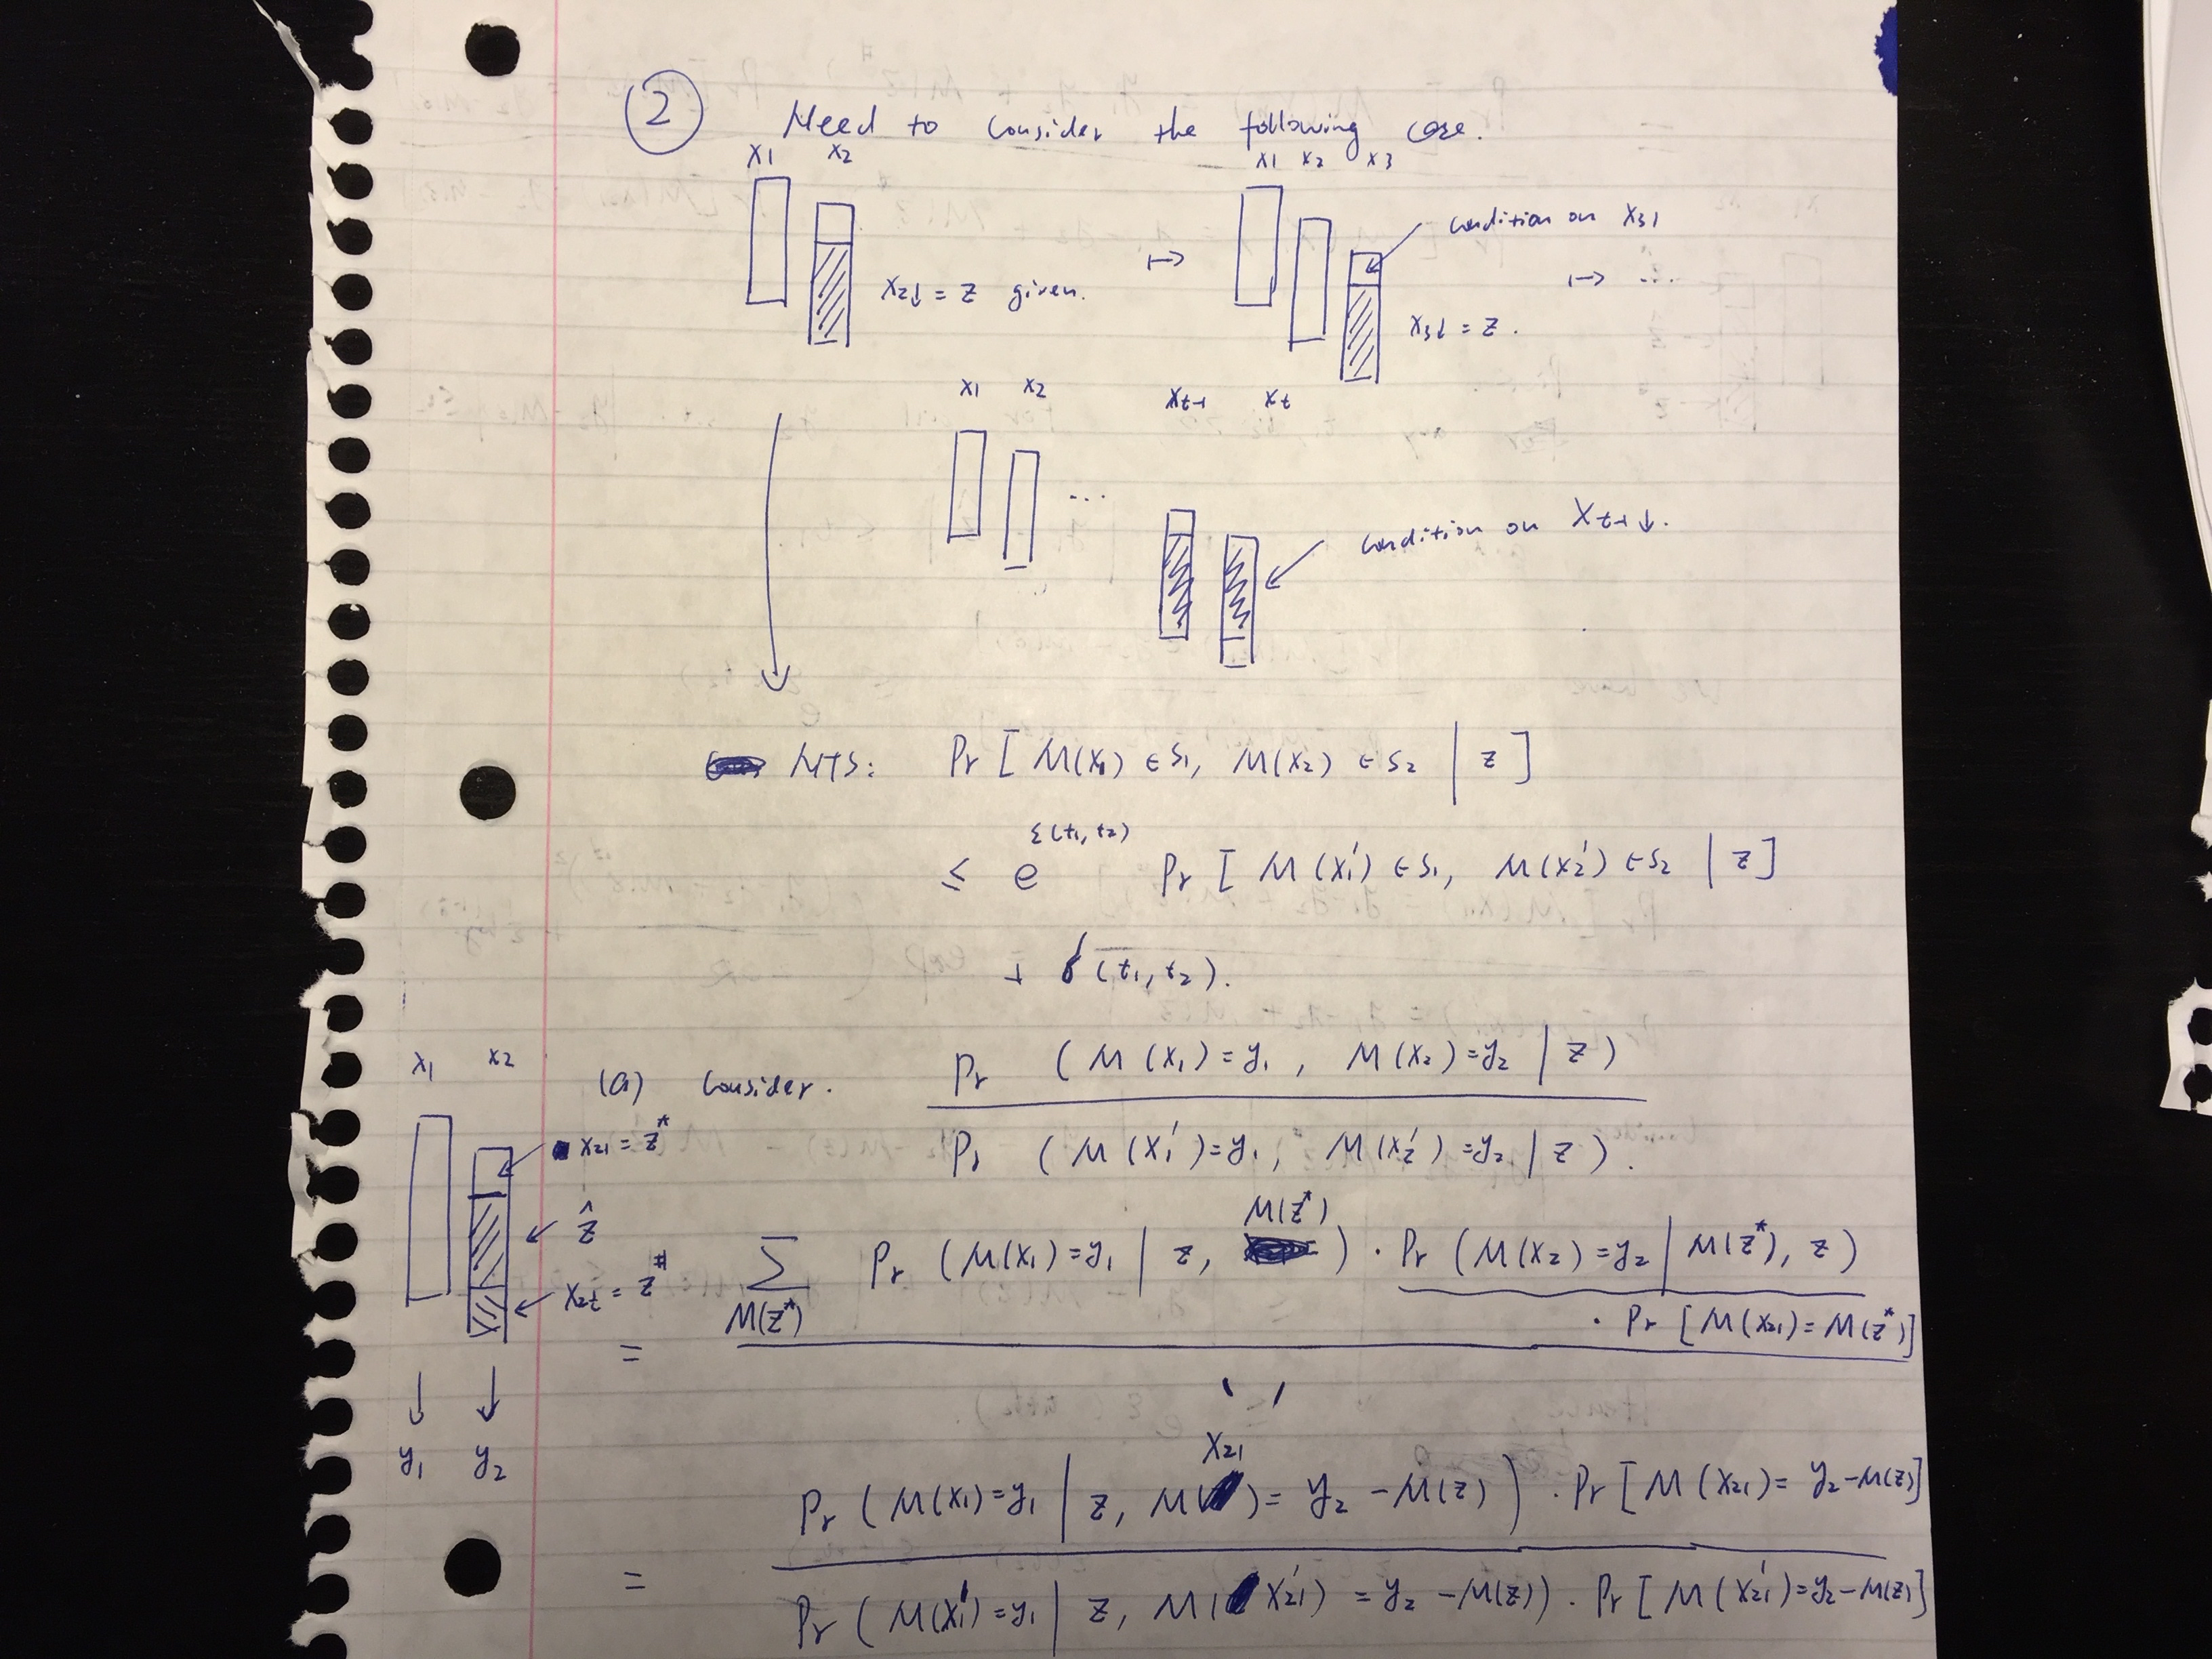 ② Need to consider the following case.
x1 x2
x2↓ = z given.
↦
x1 x2 x3
condition on x31
x3↓ = z .
↦ ...
x1 x2 ... xt-1 xt
condition on Xt-1↓.
NTS: Pr [ M(x1) ∈ S1, M(x2) ∈ S2 | z ]
≤ e^ε(t1, t2) Pr [ M(x1') ∈ S1, M(x2') ∈ S2 | z ]
+ δ(t1, t2).
x1 x2
x21 = z*
ẑ
x2t = z#
↓ ↓
y1 y2
(a) Consider. Pr ( M(x1) = y1 , M(x2) = y2 | z )
Pr ( M(x1') = y1, M(x2') = y2 | z ).
= Σ M(z*) Pr ( M(x1) = y1 | z, M(z*) ) · Pr ( M(x2) = y2 | M(z*), z )
· Pr [ M(x21) = M(z*) ]
= Pr ( M(x1) = y1 | z, M(x21) = y2 - M(z) ) · Pr [ M(x21) = y2 - M(z) ]
Pr ( M(x1') = y1 | z, M(x21') = y2 - M(z) ) · Pr [ M(x21') = y2 - M(z) ]